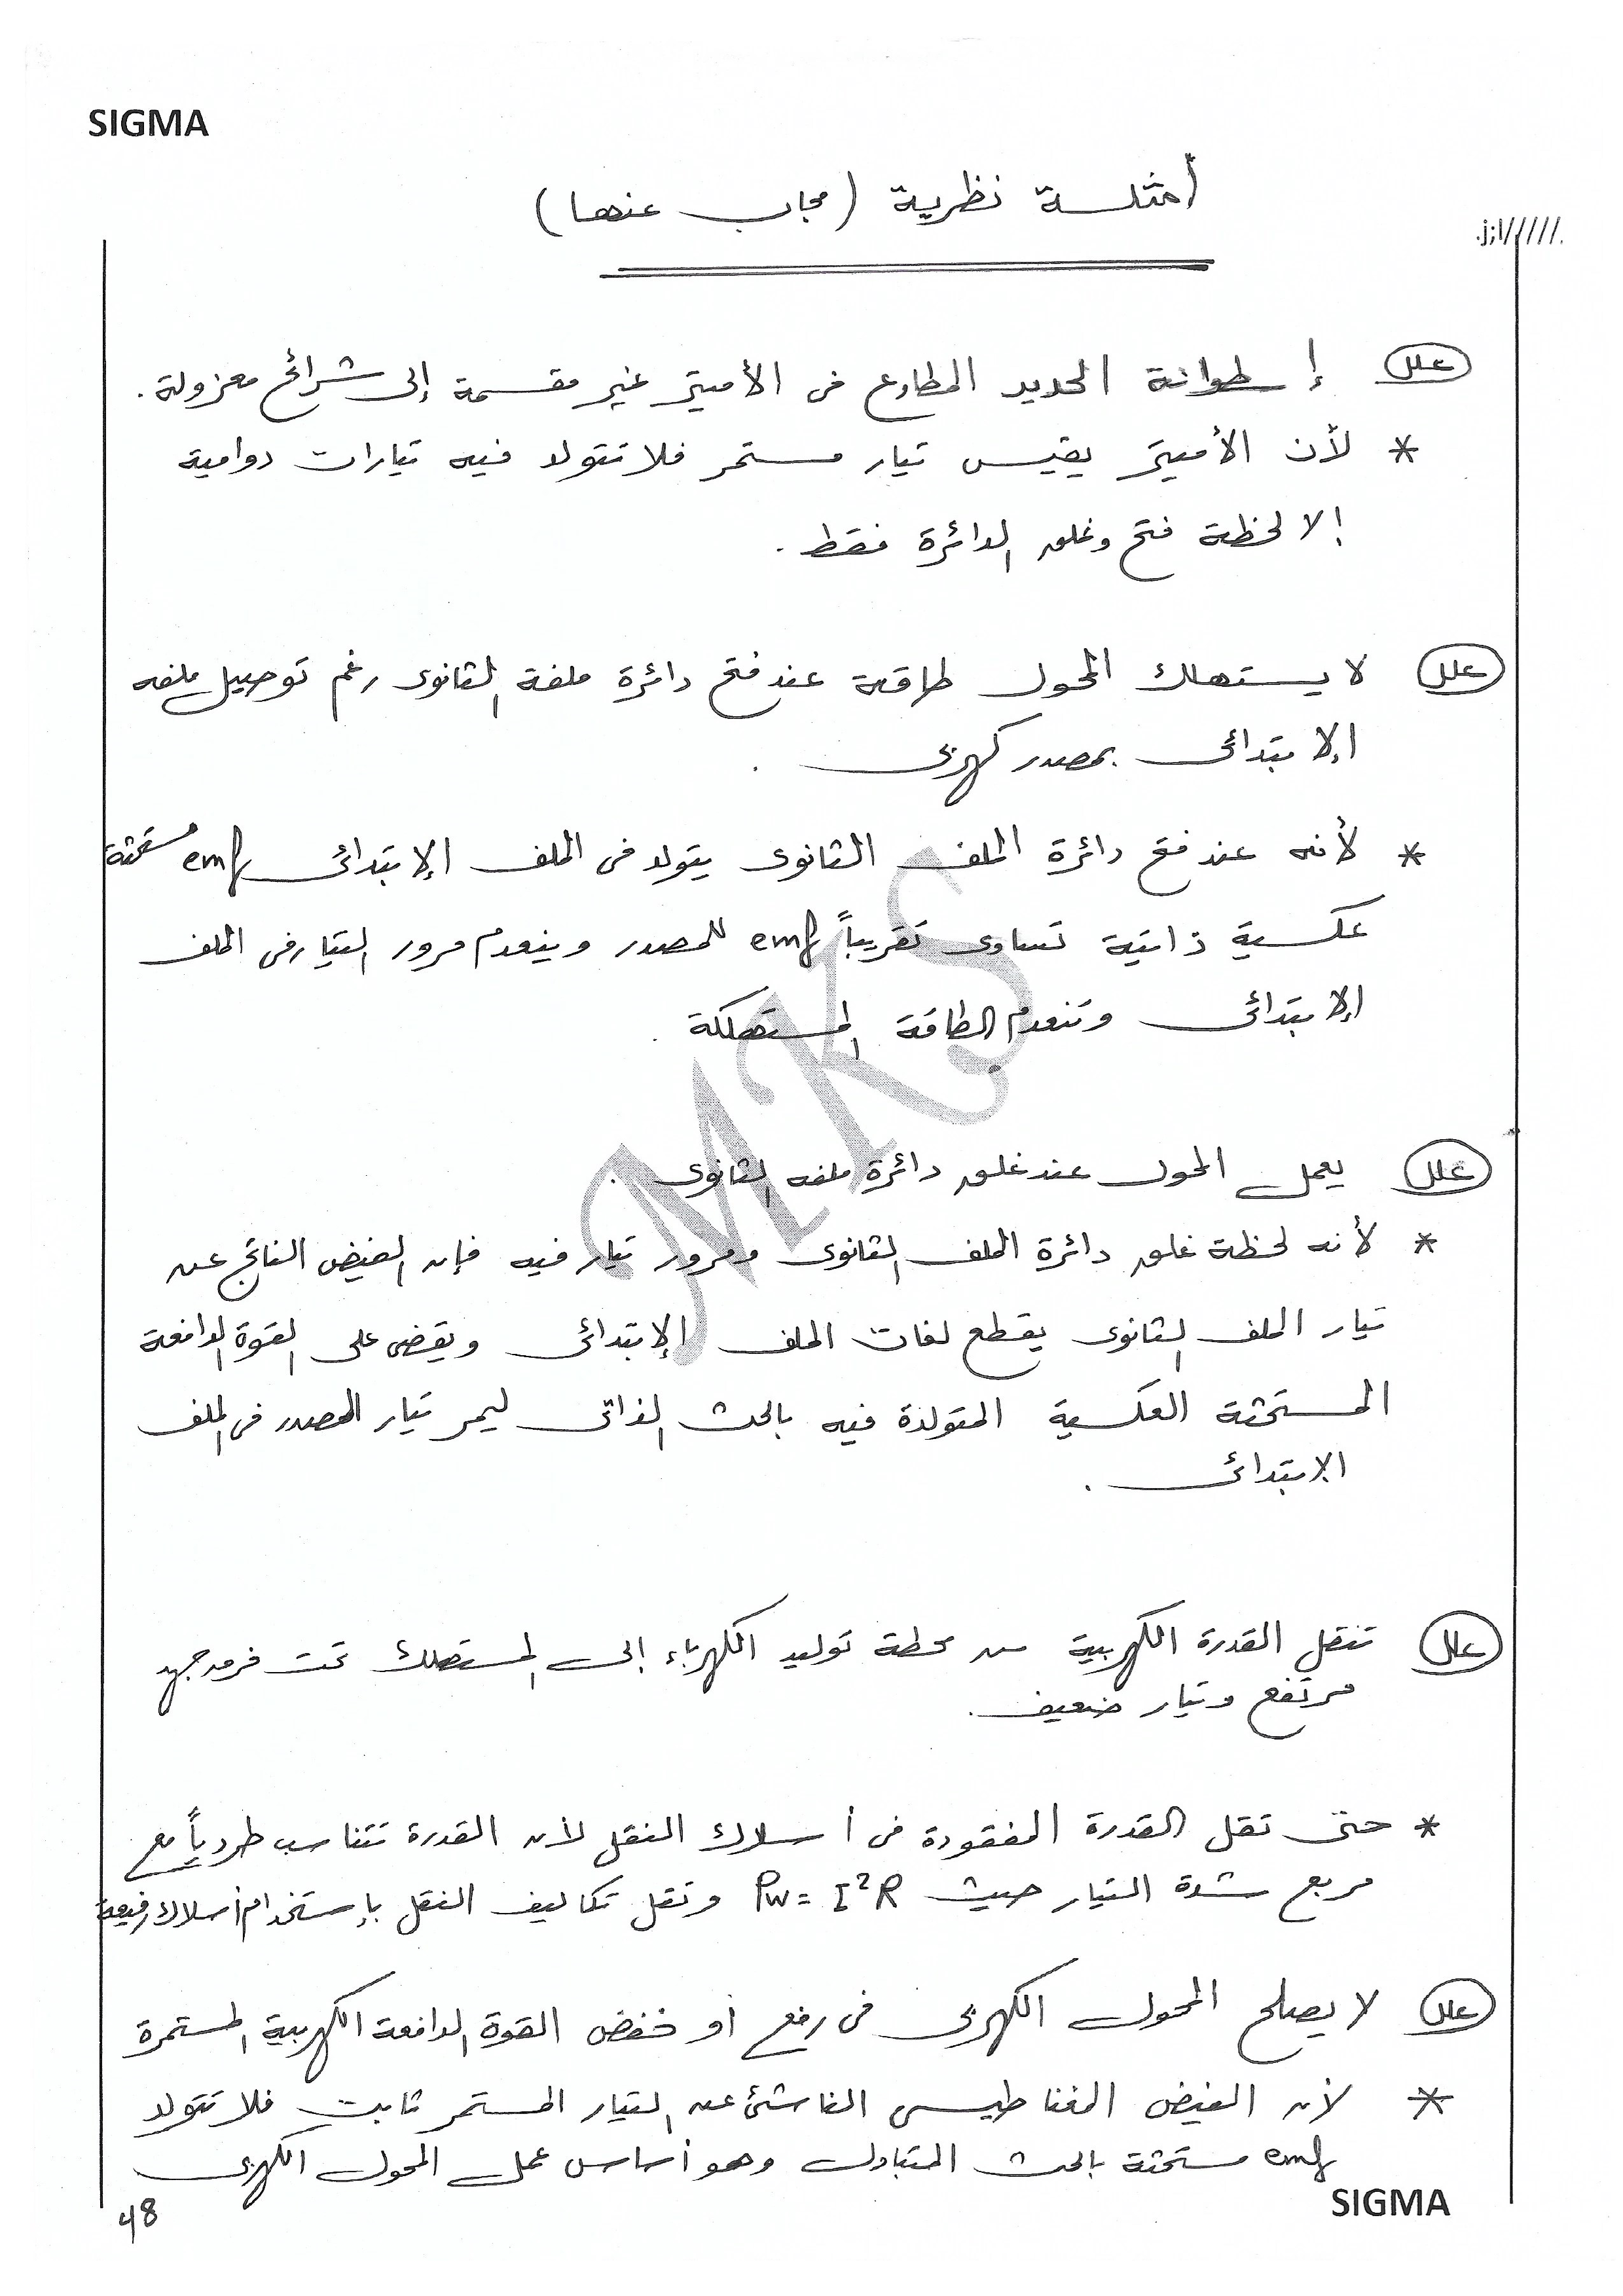 SIGMA
أمثلة نظرية (مجاب عنها)
.j;l//////.
علل إسطوانة الحديد المطاوع فى الأميتر غير مقسمة إلى شرائح معزولة.
* لأن الأميتر يقيس تيار مستمر فلا تتولد فيه تيارات دوامية
إلا لحظة فتح وغلق الدائرة فقط.
علل لا يستهلك المحول طاقة عند فتح دائرة ملفة الثانوى رغم توصيل ملفه
الإبتدائى بمصدر كهربى.
* لأنه عند فتح دائرة الملف الثانوى يتولد فى الملف الإبتدائى emf مستحثة
عكسية ذاتية تساوى تقريباً emf للمصدر وينعدم مرور التيار فى الملف
الإبتدائى وتنعدم الطاقة المستهلكة.
علل يعمل المحول عند غلق دائرة ملفه الثانوى.
* لأنه لحظة غلق دائرة الملف الثانوى ومرور تيار فيه فإن الفيض الناتج عن
تيار الملف الثانوى يقطع لفات الملف الإبتدائى ويقضى على القوة الدافعة
المستحثة العكسية المتولدة فيه بالحث الذاتى ليمر تيار المصدر فى الملف
الابتدائى.
علل تنتقل القدرة الكهربية من محطة توليد الكهرباء إلى المستهلك تحت فرق جهد
مرتفع وتيار ضعيف.
* حتى تقل القدرة المفقودة فى أسلاك النقل لأن القدرة تتناسب طردياً مع
مربع شدة التيار حيث Pw = I²R وتقل تكاليف النقل بإستخدام أسلاك رفيعة
علل لا يصلح المحول الكهربى فى رفع أو خفض القوة الدافعة الكهربية المستمرة
* لأن الفيض المغناطيسى الناشئ عن التيار المستمر ثابت فلا تتولد
emf مستحثة بالحث المتبادل وهو أساس عمل المحول الكهربى
SIGMA
48
MKS